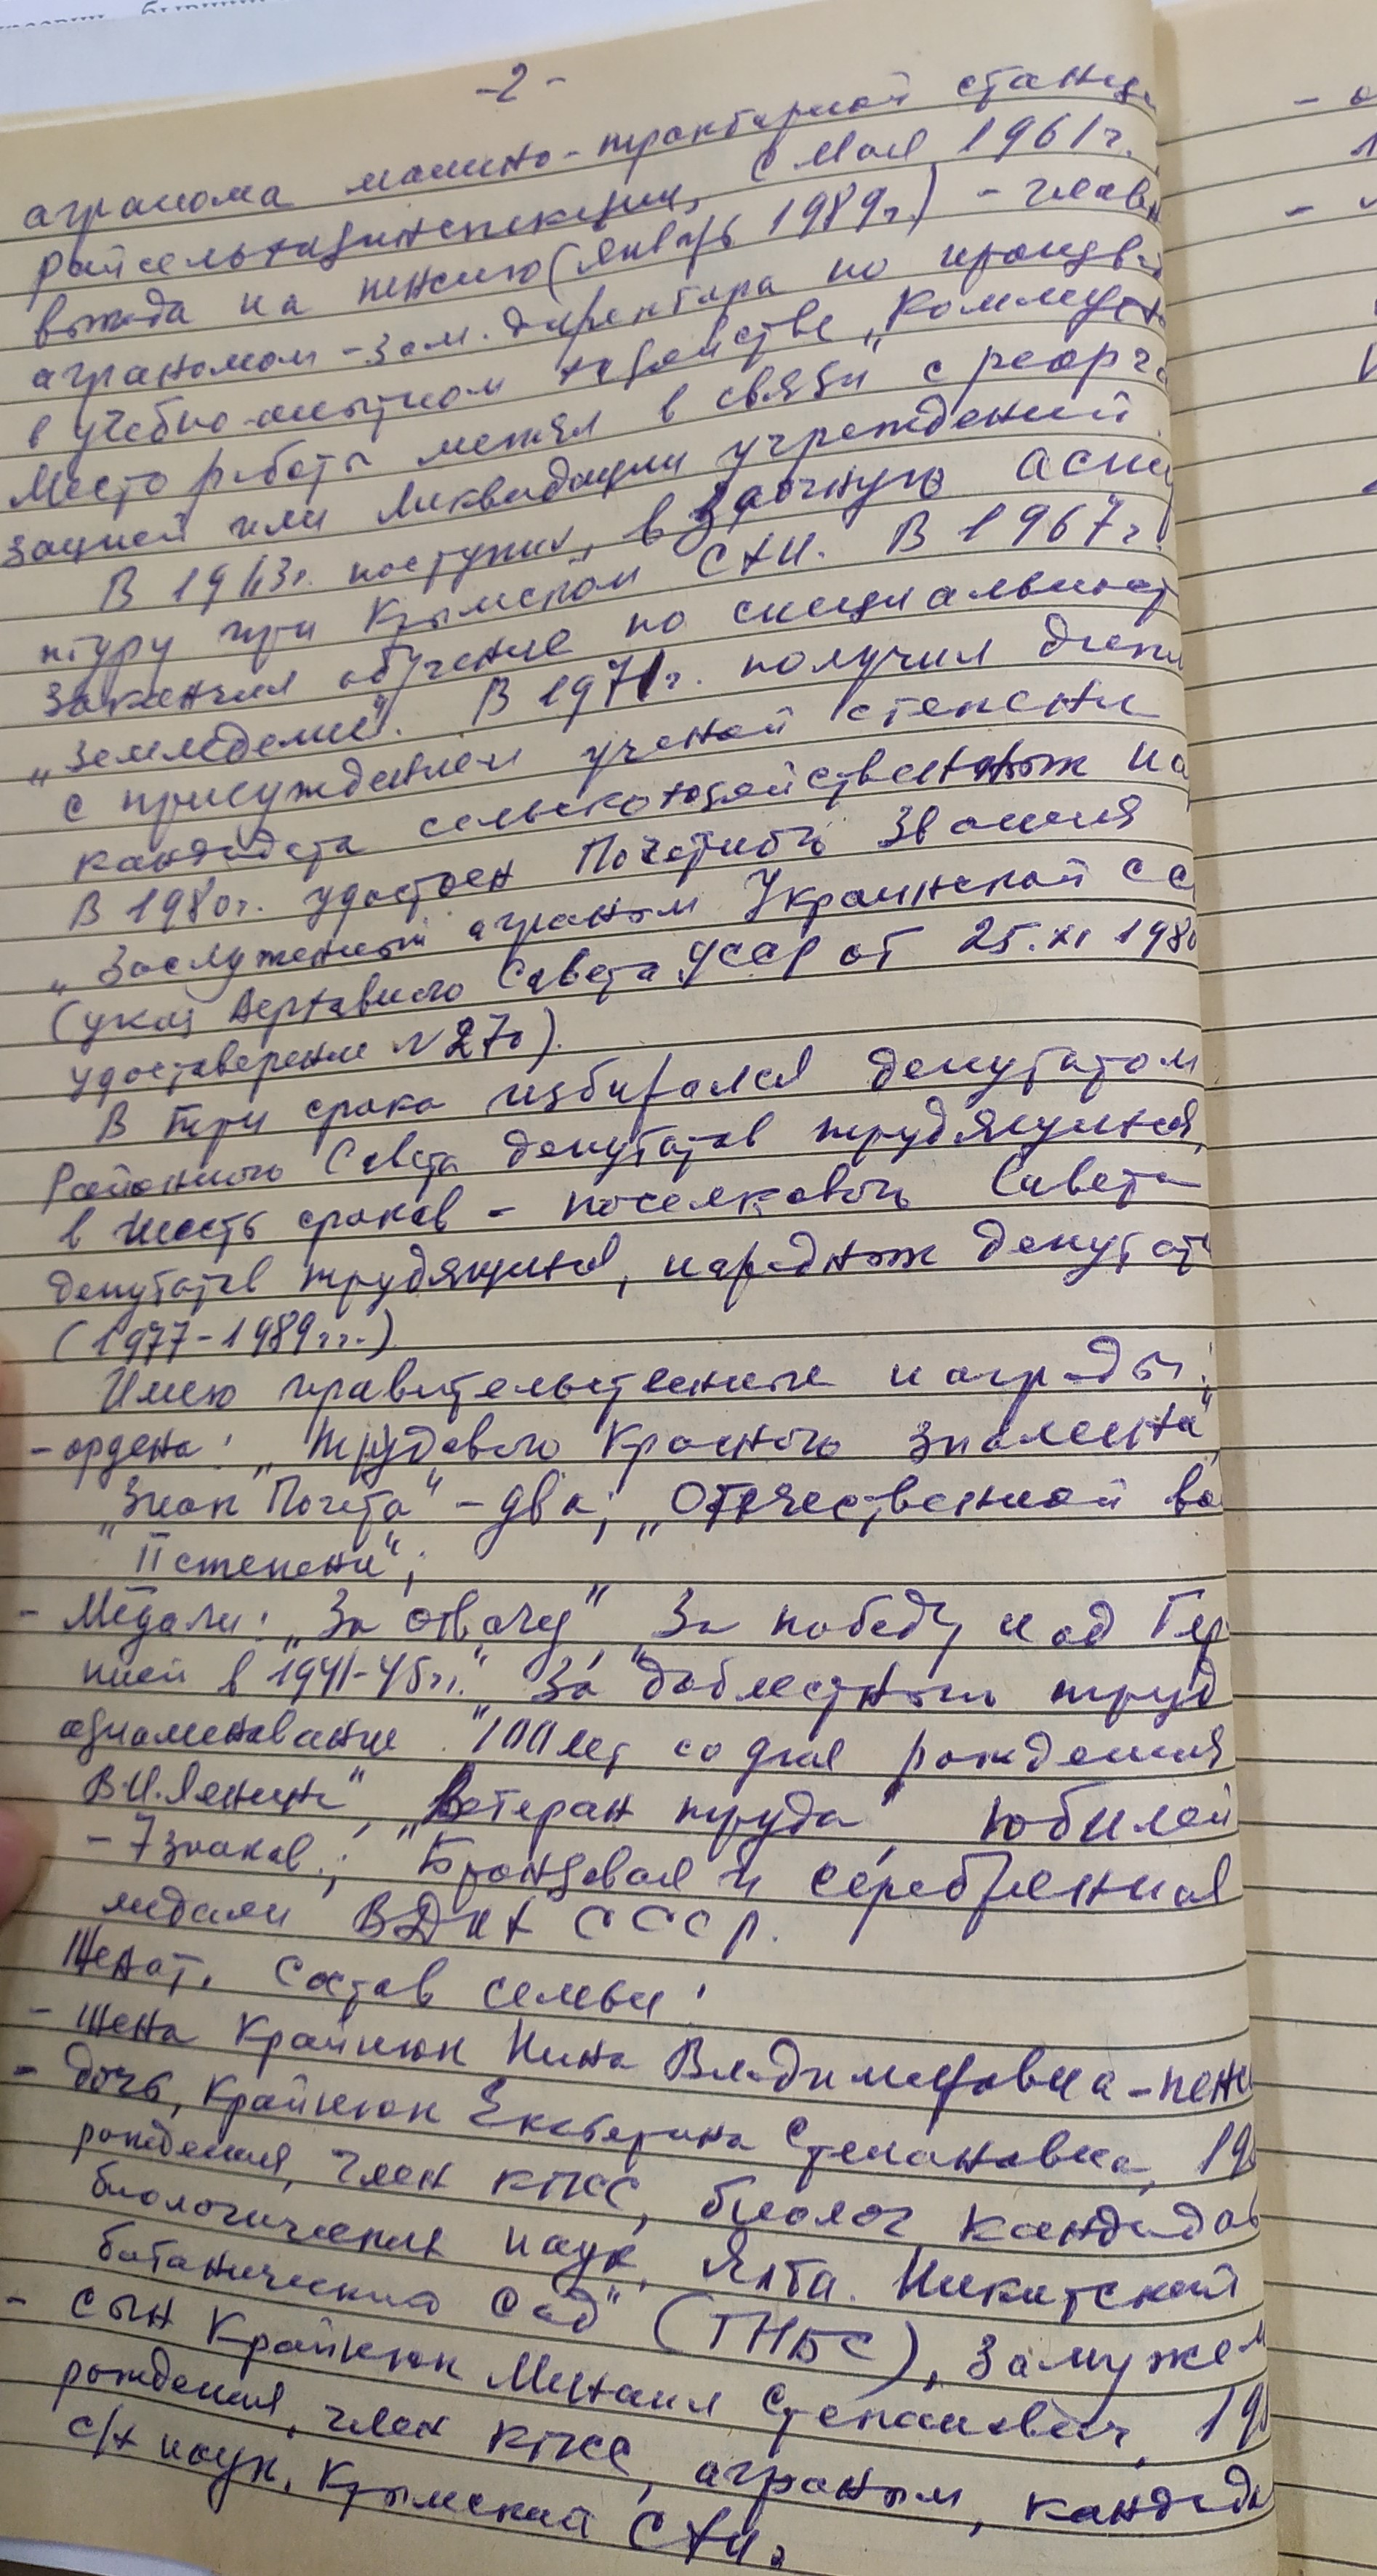 -2-
агронома машино-тракторной станци
райсельхозинспекции, с мая 1961г.
выхода на пенсию (январь 1989г.) - главн
агрономом - зам. директора по производ
в учебно-опытном хозяйстве „Коммуна
Место работы менял в связи с реорга
зацией или ликвидации учреждений.
В 1963г. поступил в заочную аспи
нтуру при Крымском СХИ. В 1967г.
закончил обучение по специальност
„Земледелие". В 1971г. получил дипл
с присуждением ученой степени
кандидата сельскохозяйственных на
В 1980г. удостоен Почетного звания
„Заслуженный агроном Украинской СС
(указ Верховного Совета УССР от 25.XI 1980
удостоверение №270).
В три срока избирался депутатом
Районного Совета депутатов трудящихся,
в шесть сроков - поселкового Совета
депутатов трудящихся, народных депутат
(1977-1989гг.)
Имею правительственные награды:
- ордена: „Трудового Красного знамени",
„Знак Почета" - два; „Отечественной во
II степени";
- Медали: „За отвагу", „За победу над Гер
нией в 1941-45гг.", За доблестный труд
ознаменование "100 лет со дня рождения
В.И.Ленина", „Ветеран труда", юбилей
- 7 знаков.; Бронзовая и серебренная
медали ВДНХ СССР.
Женат. Состав семьи:
- жена Крайнюк Нина Владимировна - пенс
- дочь, Крайнюк Екатерина Степановна, 19
рождения, член КПСС, биолог, кандидат
биологических наук, Ялта. Никитский
ботанический сад" (ГНБС), замужем
- сын Крайнюк Михаил Степанович, 19
рождения, член КПСС, агроном, кандида
с/х наук, Крымский СХИ.